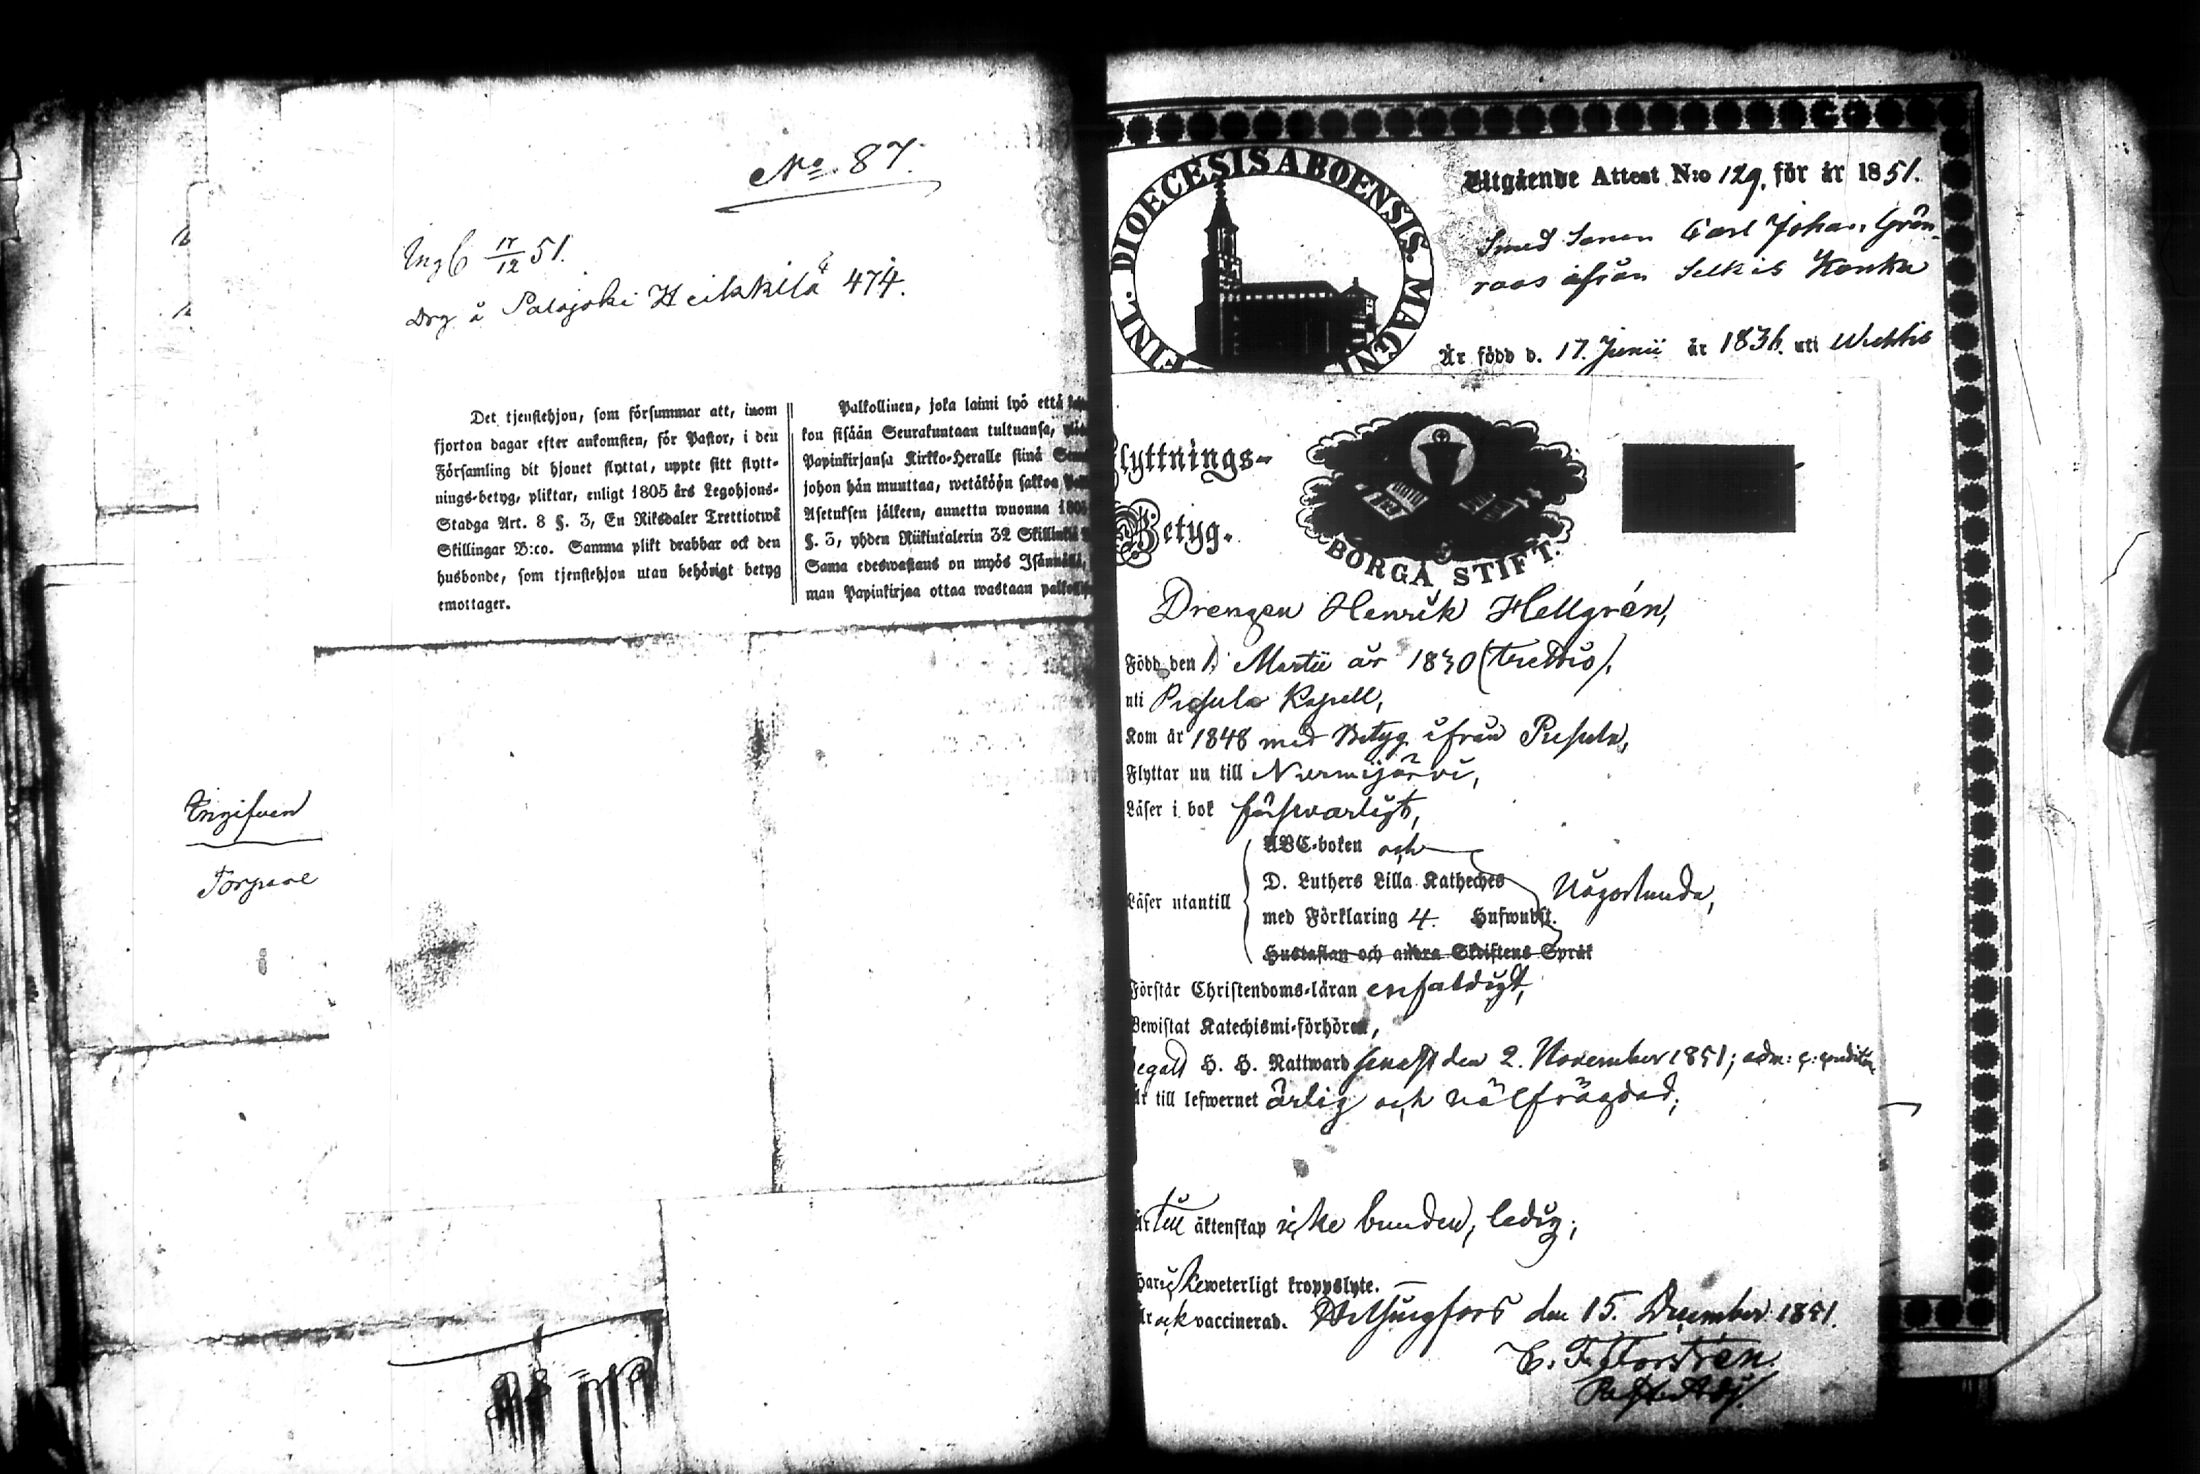 No. 87.
Ingb 17/12 51.
Drg å Palojoki Heikkilä 474.
Det tjenstehjon, som försummar att, inom
fjorton dagar efter ankomsten, för Pastor, i den
Församling dit hjonet flyttat, uppte sitt flytt-
nings-betyg, pliktar, enligt 1805 års Legohjons-
Stadga Art. 8 §. 3, En Riksdaler Trettiotwå
Skillingar B:co. Samma plikt drabbar ock den
husbonde, som tjenstehjon utan behörigt betyg
emottager.
Palkollinen, joka laimi lyö että
kon sisään Seurakuntaan tultuansa,
Papinkirjansa Kirkko-Heralle siinä
johon hän muuttaa, wetäköön sakkoa
Asetuksen jälkeen, annettu wuonna 1805
§. 3, yhden Riikintalerin 32 Skillinkiä
Sama edeswastaus on myös Isännällä,
man Papinkirjaa ottaa wastaan
Ingifven
Torpare
FINL. DIOECESIS ABOENSIS. MAGNI
Utgående Attest N:o 129, för år 1851.
Smed Sonen Carl Johan Grön-
roos ifrån Selkis Konka
Är född d. 17. Junii år 1836. uti Wichtis
Flyttnings-
Betyg.
BORGÅ STIFT.
Drengen Henrik Hellgrén,
Född den 1. Martii år 1830 (trettio),
uti Pusula Kapell,
Kom år 1848 med Betyg ifrån Pusula,
Flyttar nu till Nurmijärvi,
Läser i bok försvarligt,
ABC-boken och
D. Luthers Lilla Katheches
Läser utantill
med Förklaring 4. Hufwudst.
Någorlunda,
Hustaflan och andra Skriftens Språk
Förstår Christendoms-läran enfaldigt,
Bewistat Katechismi-förhören,
Begått H. H. Nattward senast den 2. November 1851;
Är till lefwernet ärlig och välfrägdad;
Är till äktenskap icke bunden, ledig;
Har icke weterligt kroppslyte.
Är ock vaccinerad. Helsingfors den 15. December 1851.